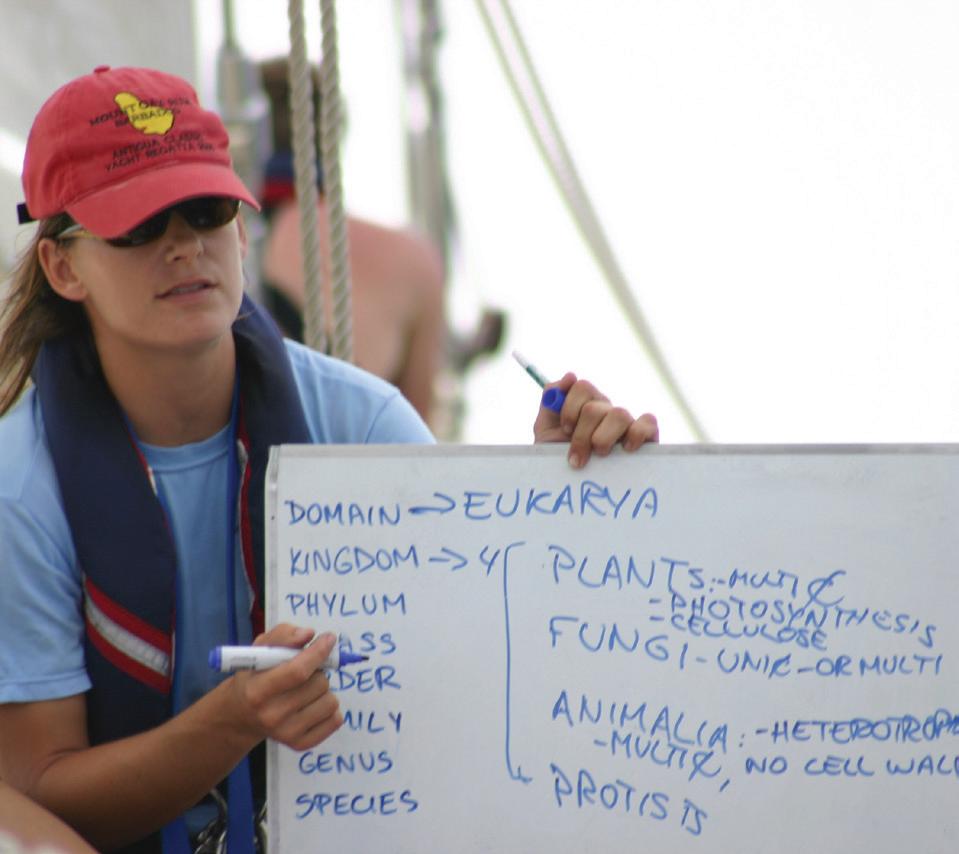 MOUNT GAY RUM
BARBADOS
ANTIGUA CLASSIC
YACHT REGATTA
DOMAIN → EUKARYA
KINGDOM → 4
PHYLUM
ASS
DER
MILY
GENUS
SPECIES
PLANTS:-MULTI ₵
-PHOTOSYNTHESIS
-CELLULOSE
FUNGI-UNI₵-OR MULTI
ANIMALIA:-HETEROTROPH
-MULTI₵, NO CELL WALL
PROTISTS